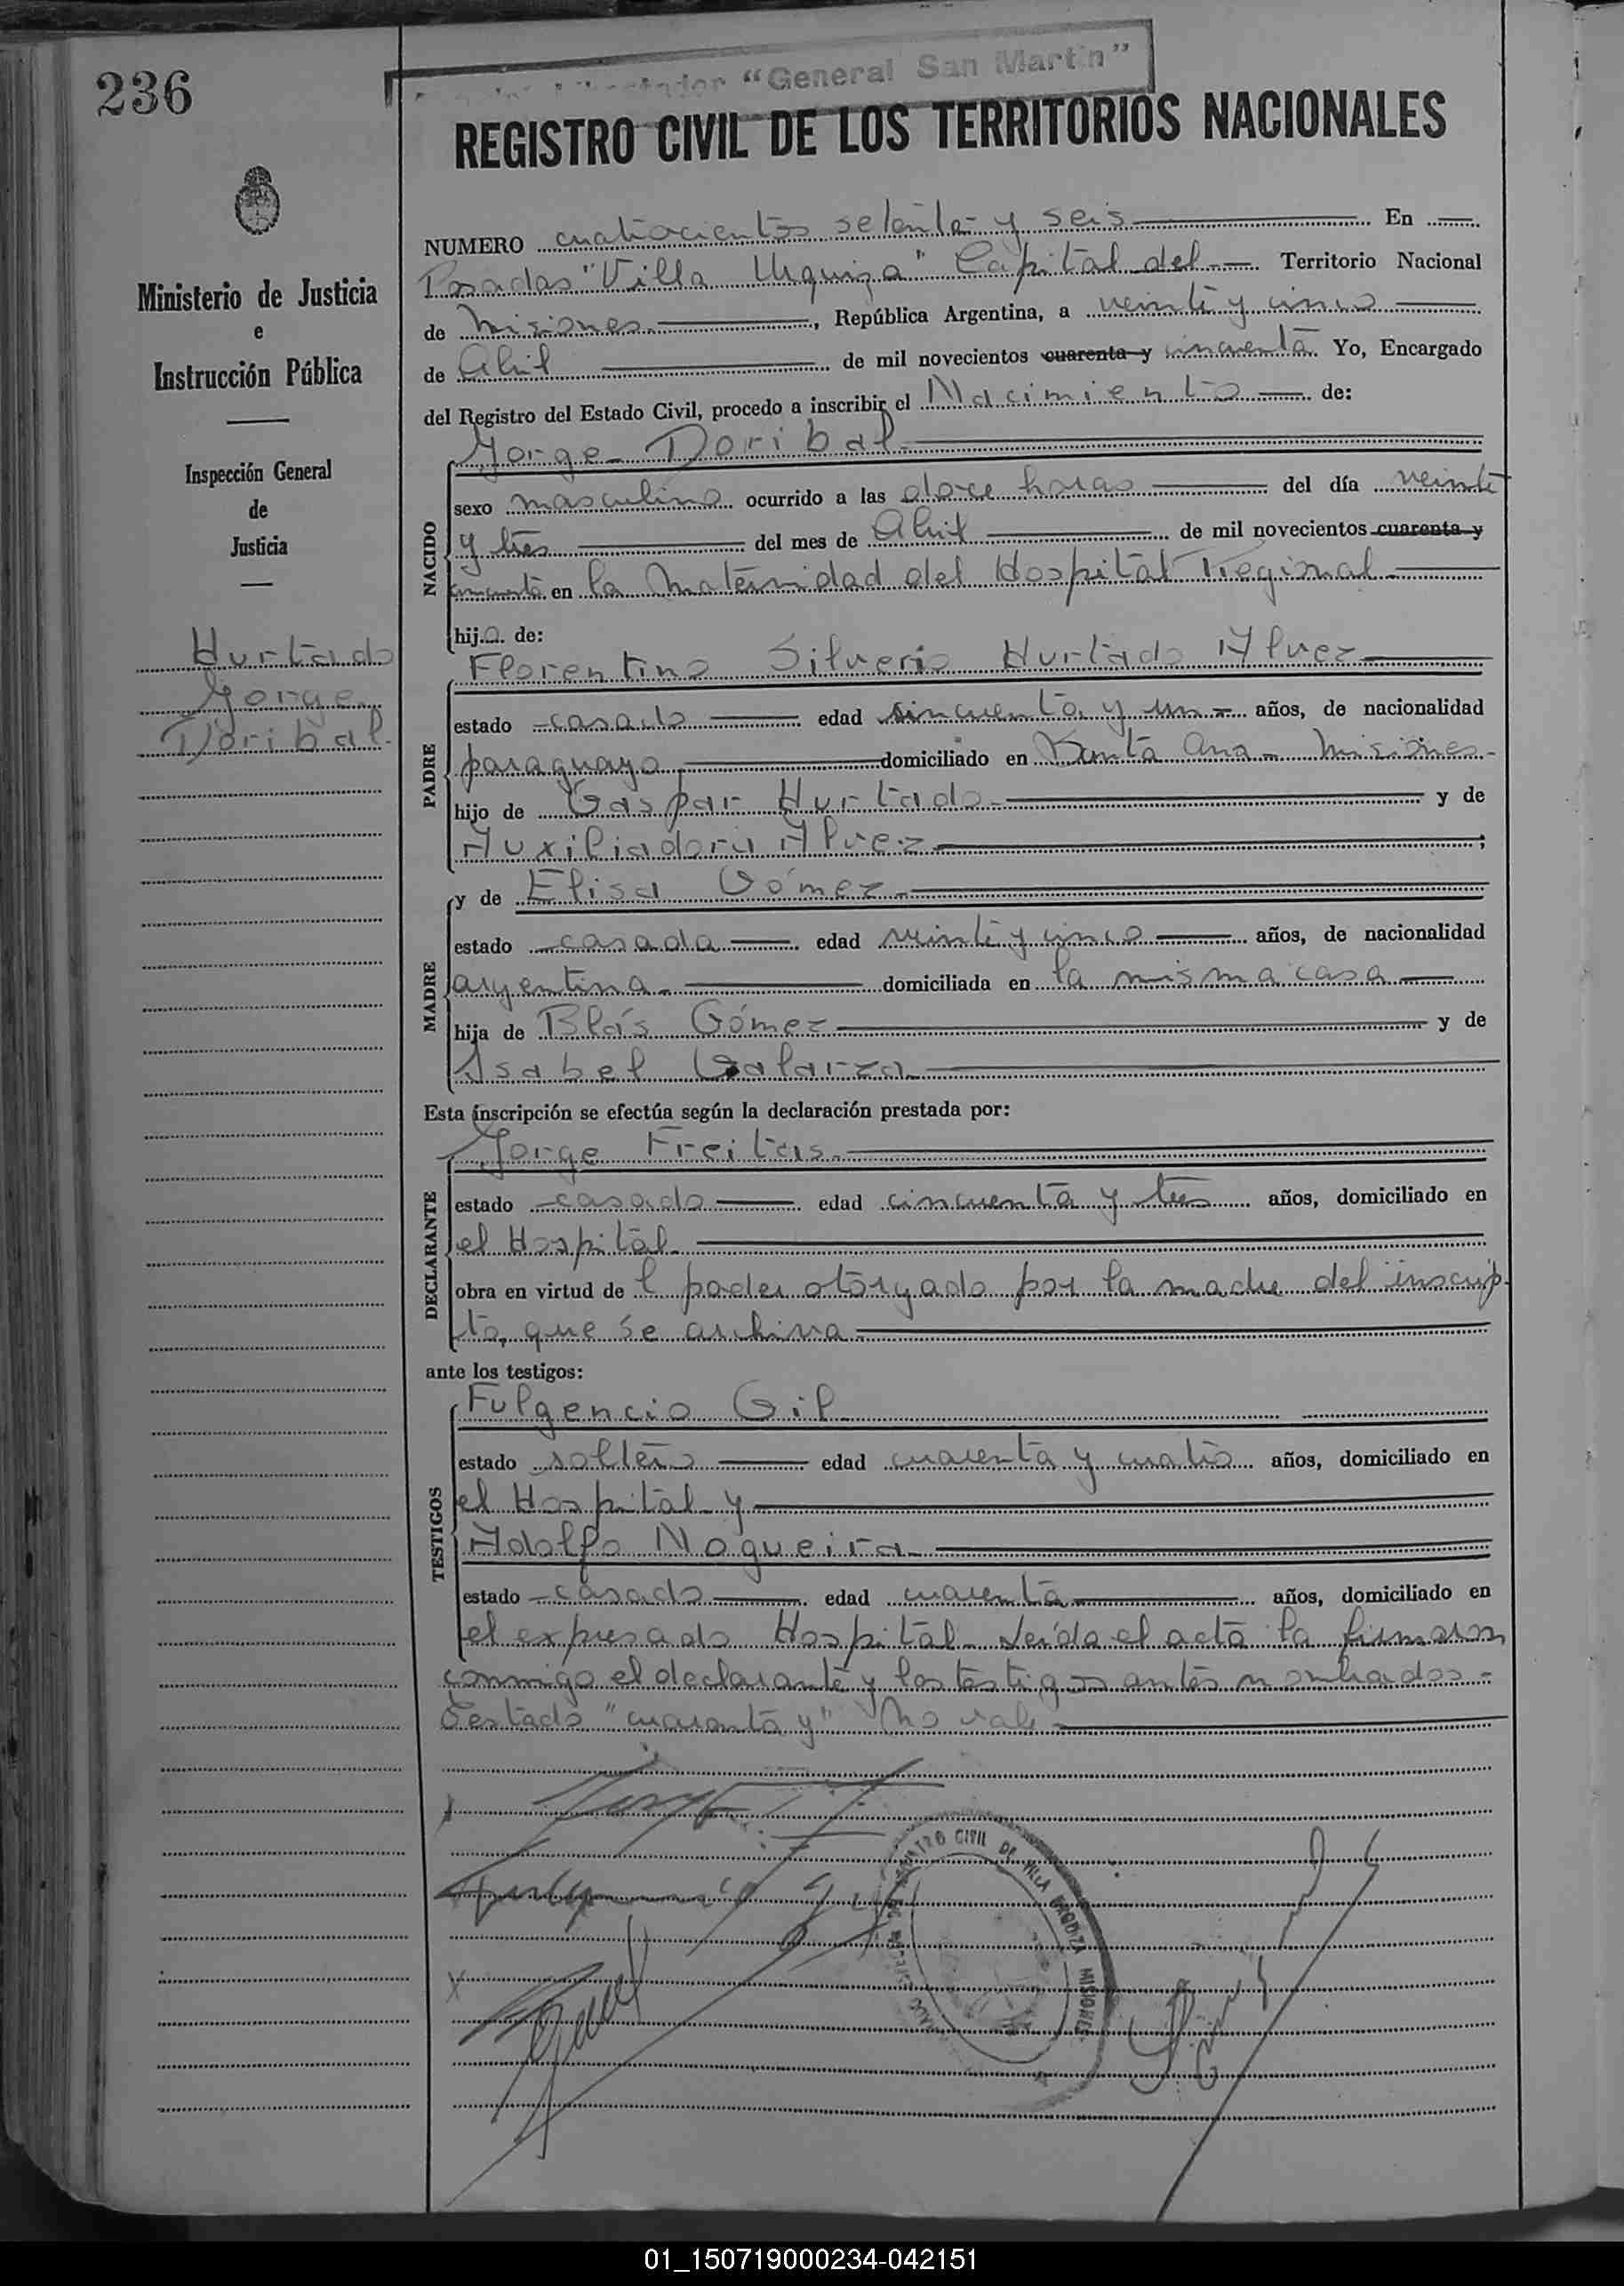 236
"General San Martin"
REGISTRO CIVIL DE LOS TERRITORIOS NACIONALES
Ministerio de Justicia
e
Instrucción Pública
Inspección General
de
Justicia
Hurtado
Jorge
Doribal.
NUMERO cuatrocientos setenta y seis En
Posadas "Villa Urquiza" Capital del Territorio Nacional
de Misiones, República Argentina, a veinte y cinco
de Abril de mil novecientos cuarenta y cincuenta Yo, Encargado
del Registro del Estado Civil, procedo a inscribir el Nacimiento de:
Jorge Doribal
NACIDO
sexo masculino ocurrido a las doce horas del día veinte
y tres del mes de Abril de mil novecientos cuarenta y
cincuenta en la Maternidad del Hospital Regional
hijo de:
Florentino Silverio Hurtado Alvez
PADRE
estado casado edad cincuenta y un años, de nacionalidad
paraguayo domiciliado en Santa Ana - Misiones-
hijo de Gaspar Hurtado y de
Auxiliadora Alvez;
y de Elisa Gómez
MADRE
estado casada edad veinte y cinco años, de nacionalidad
argentina domiciliada en la misma casa
hija de Blás Gómez y de
Isabel Galarza
Esta inscripción se efectúa según la declaración prestada por:
Jorge Freitas
DECLARANTE
estado casado edad cincuenta y tres años, domiciliado en
el Hospital
obra en virtud de l poder otorgado por la madre del inscrip-
to, que se archiva
ante los testigos:
Fulgencio Gil
TESTIGOS
estado soltero edad cuarenta y cuatro años, domiciliado en
el Hospital y
Adolfo Nogueira
estado casado edad cuarenta años, domiciliado en
el expresado Hospital - Leída el acta la firmaron
conmigo el declarante y los testigos antes nombrados -
Testado "cuaranta y" No vale
REGISTRO CIVIL DE VILLA URQUIZA MISIONES
01_150719000234-042151